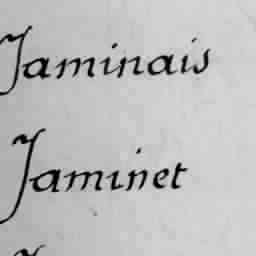 Jaminais
Jaminet